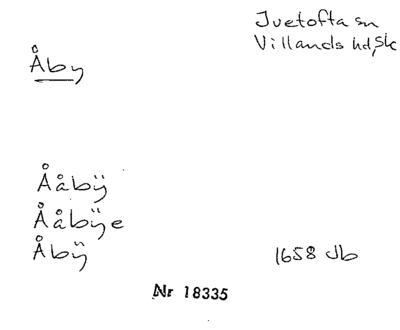 Ivetofta sn
Villands hd, Sk
Åby
Ååbÿ
Ååbÿe
Åbÿ
1658 Jb
Nr 18335